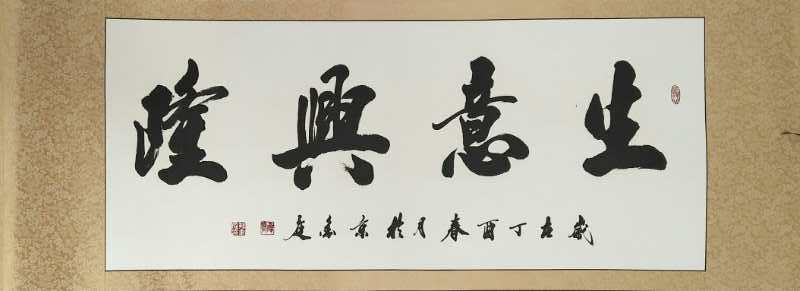 生意興隆
歲在丁酉春月於京